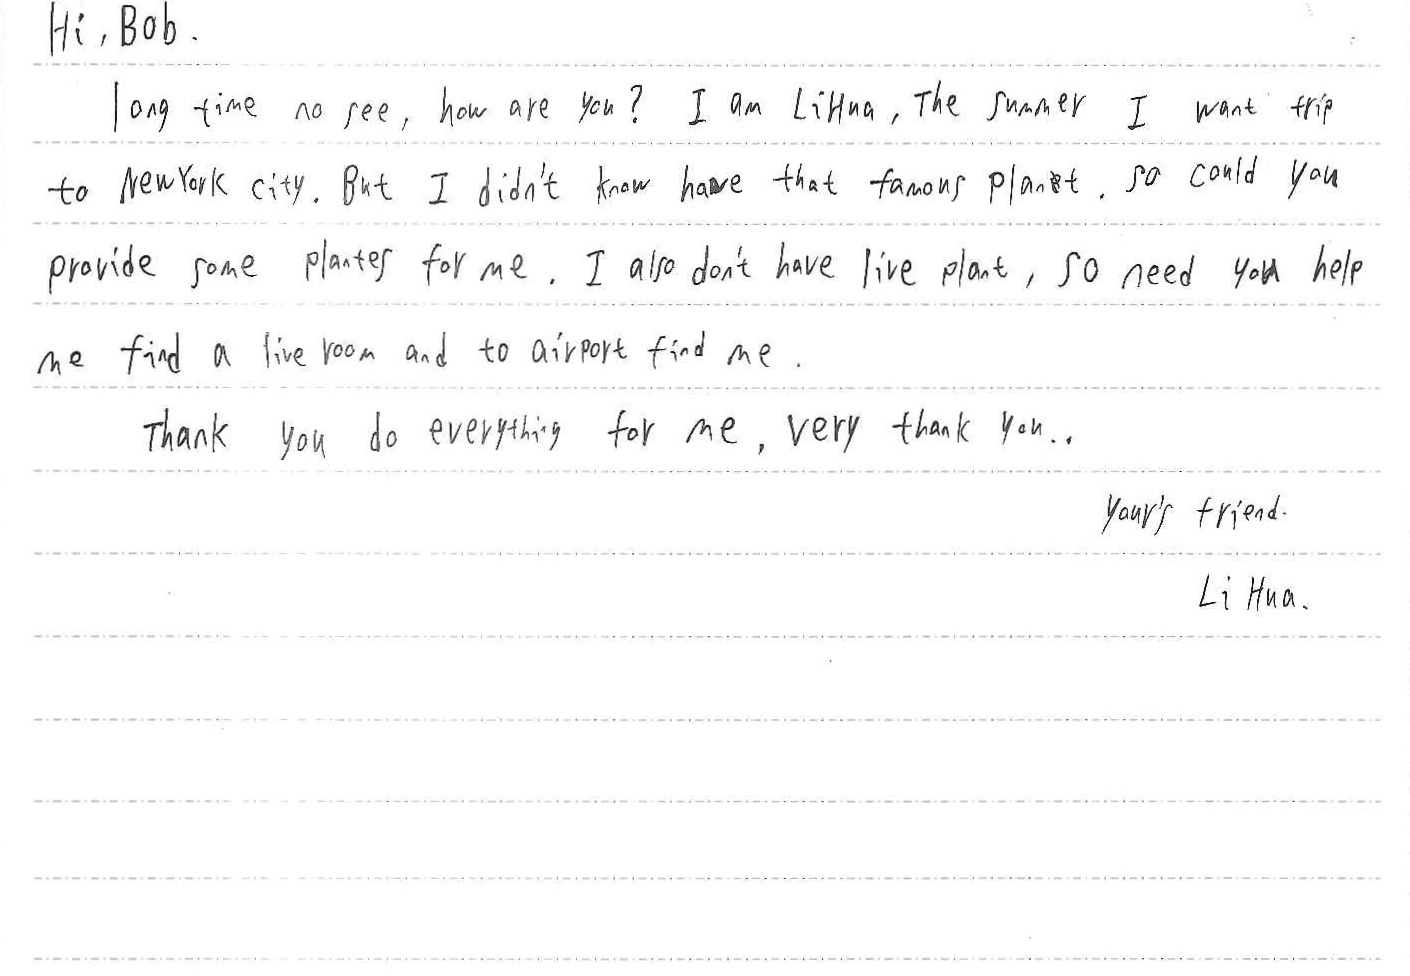 Hi, Bob.
long time no see, how are you? I am LiHua, The summer I want trip
to NewYork city. But I didn't know have that famous planet. so could you
provide some plantes for me. I also don't have live plant, so need you help
me find a live room and to airport find me.
Thank you do everything for me, very thank you..
your's friend.
Li Hua.